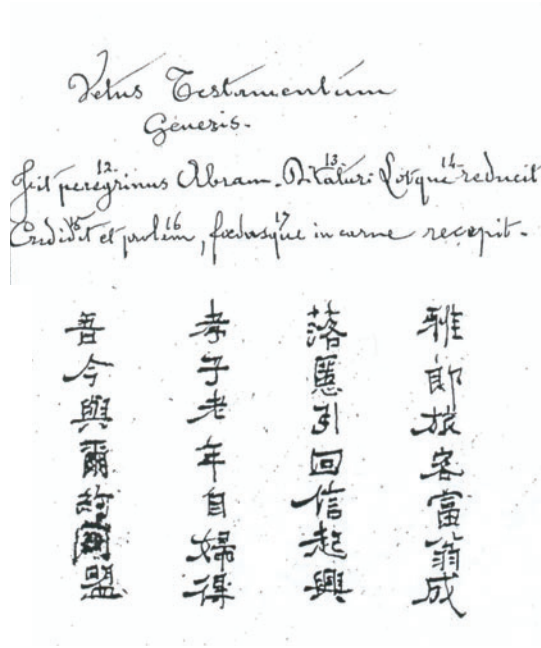 Vetus Testamentum
Genesis.
12. 13. 14.
Fit peregrinus Abram. Ditatur: Lotque reducit
15 16 17
Credidit et prolem, fœdusque in carne recepit.
雅郎旅客富翁成
落慝引回信起興
孝子老年自婦得
吾今與爾約盟